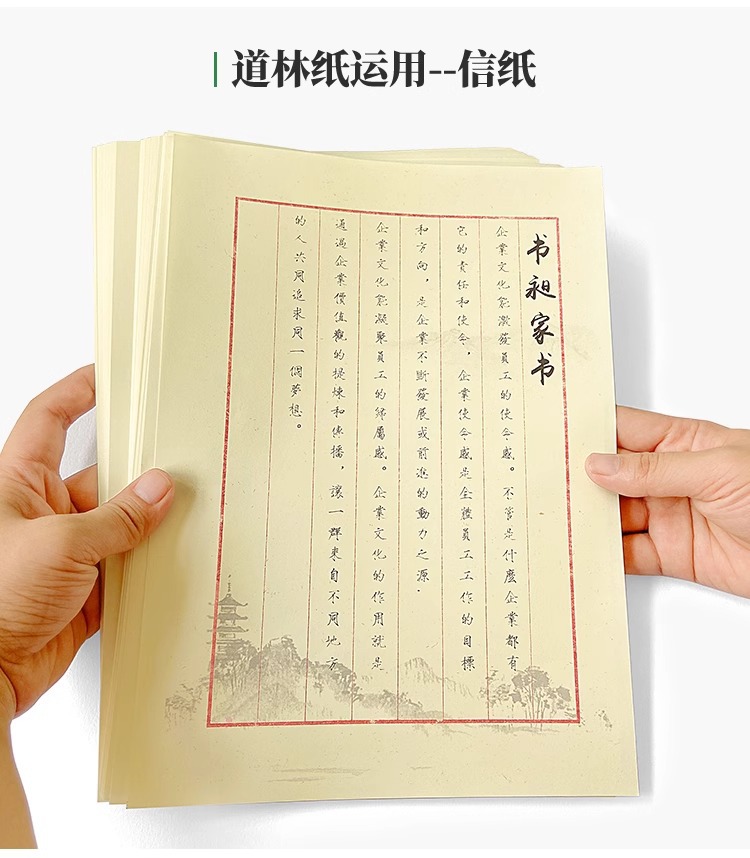 道林纸运用--信纸
书昶家书
企業文化能激發員工的使命感。不管是什麼企業都有
它的責任和使命，企業使命感是全體員工工作的目標
和方向，是企業不斷發展或前進的動力之源.
企業文化能凝聚員工的歸屬感。企業文化的作用就是
通過企業價值觀的提煉和傳播，讓一群來自不同地方
的人共同追求同一個夢想。